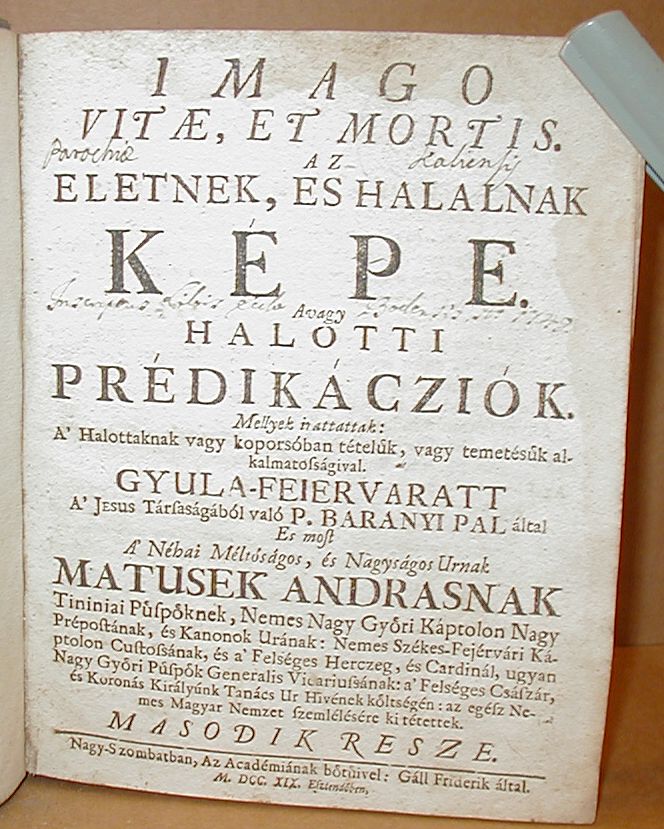 IMAGO
VITÆ, ET MORTIS.
Parochiæ
AZ
ELETNEK, ES HALALNAK
KÉPE.
Avagy
HALOTTI
PRÉDIKÁCZIÓK.
Mellyek irattattak:
A' Halottaknak vagy koporsóban tételűk, vagy temetésűk al-
kalmatoſságival.
GYULA-FEIERVARATT
A' JESUS Tárſaságából való P. BARANYI PAL által
Es moſt
A' Néhai Méltóságos, és Nagyságos Urnak
MATUSEK ANDRASNAK
Tininiai Pűſpőknek, Nemes Nagy Győri Káptolon Nagy
Prépoſtának, és Kanonok Urának: Nemes Székes-Fejérvári Ká-
ptolon Cuſtoſsának, és a' Felséges Herczeg, és Cardinál, ugyan
Nagy Győri Pűſpők Generalis Vicariuſsának: a' Felséges Cſászár,
és Koronás Királyúnk Tanács Ur Hívének kőltségén: az egéſz Ne-
mes Magyar Nemzet ſzemlélésére ki tétettek.
MASODIK RESZE.
Nagy-Szombatban, Az Académiának bőtűivel: Gáll Friderik által.
M. DCC. XIX. Eſztendőben,